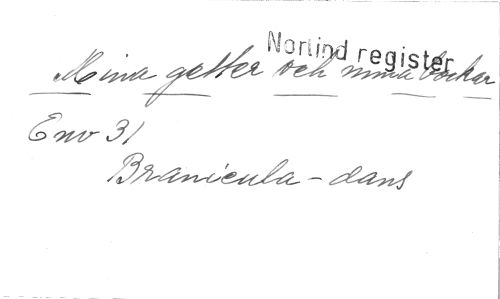 Norlind register
Mina getter och mina bockar
Env 31
Branicula - dans